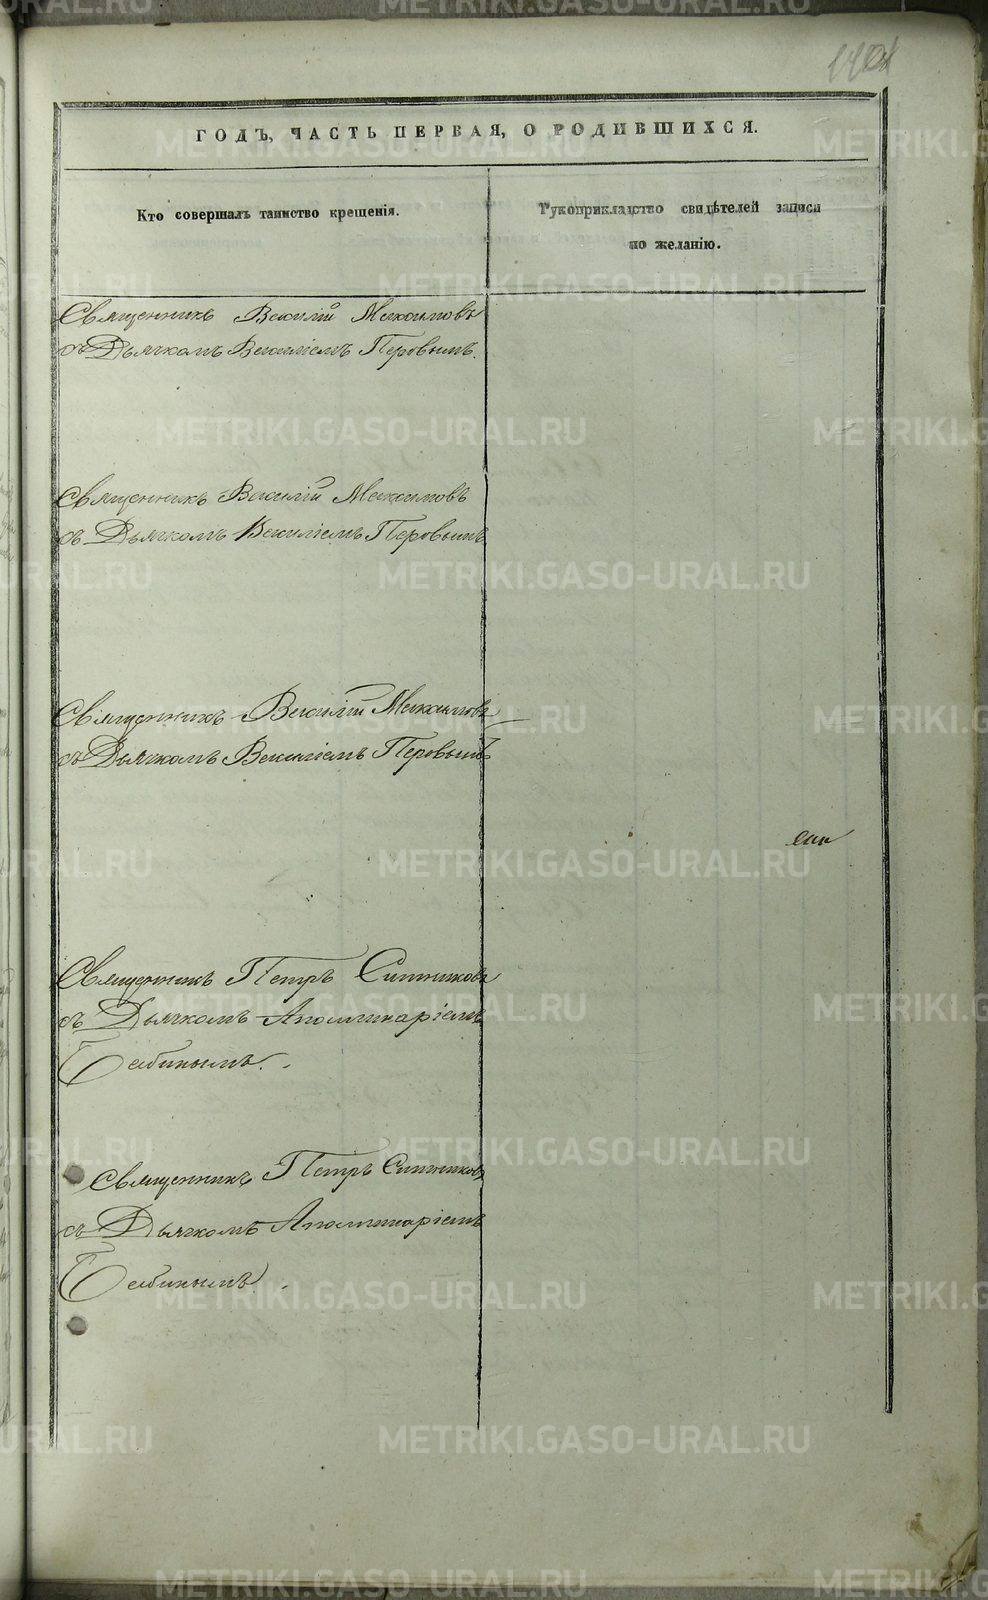 ГОДЪ, ЧАСТЬ ПЕРВАЯ, О РОДИВШИХСЯ.
Кто совершалъ таинство крещенія.
Рукоприкладство свидѣтелей записи
по желанію.
Священникъ Василій Максимовъ
съ Дьячкомъ Василіемъ Перовымъ.
Священникъ Василій Максимовъ
съ Дьячкомъ Василіемъ Перовымъ
Священникъ Василій Максимовъ
съ Дьячкомъ Василіемъ Перовымъ
Священникъ Петръ Ситниковъ
съ Дьячкомъ Аполлинаріемъ
Бабинымъ.
Священникъ Петръ Ситниковъ
съ Дьячкомъ Аполлинаріемъ
Бабинымъ.
METRIKI.GASO-URAL.RU